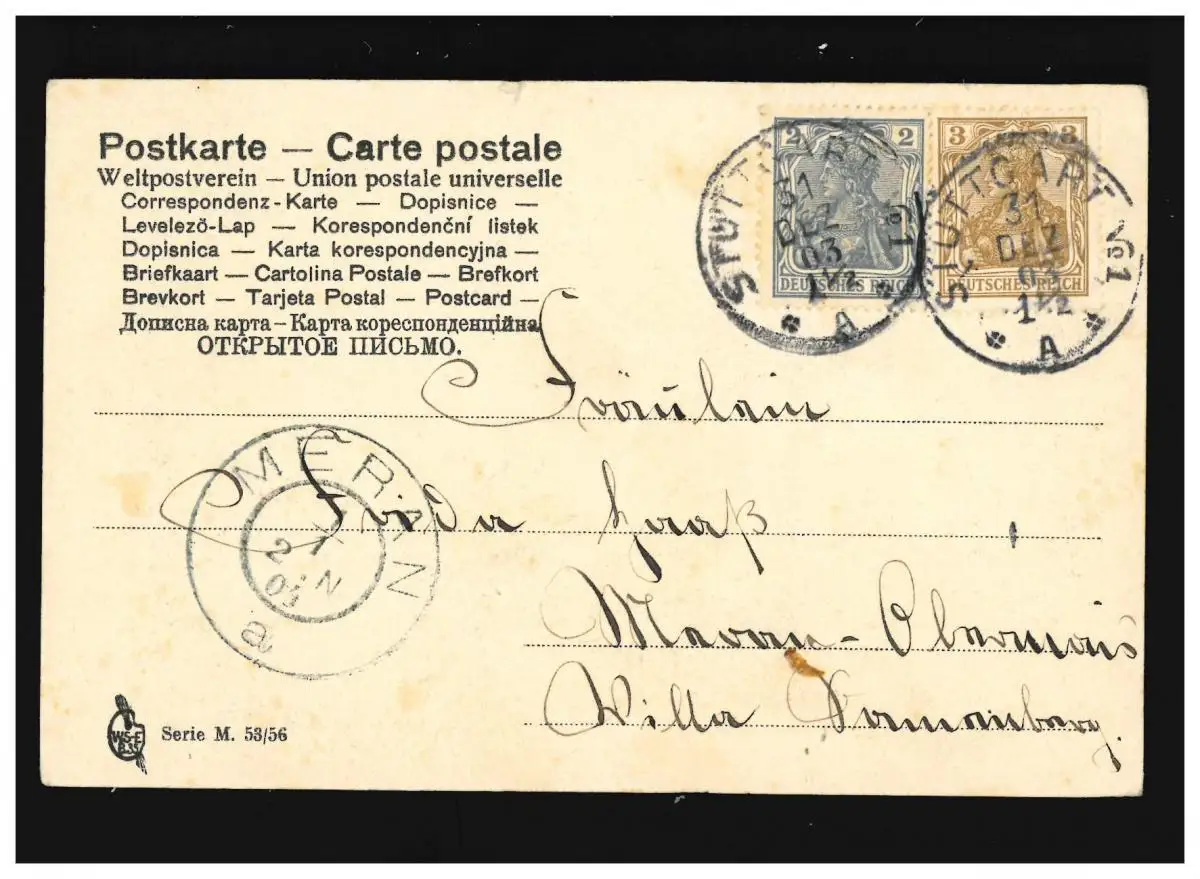 Postkarte — Carte postale
Weltpostverein — Union postale universelle
Correspondenz-Karte — Dopisnice —
Levelező-Lap — Korespondenční lístek
Dopisnica — Karta korespondencyjna —
Briefkaart — Cartolina Postale — Brefkort
Brevkort — Tarjeta Postal — Postcard —
Дописна карта — Карта кореспонденційна
ОТКРЫТОЕ ПИСЬМО.
2 2
DEUTSCHES REICH
3 3
DEUTSCHES REICH
STUTTGART No1
31
DEZ
03
1½
A
STUTTGART No1
31
DEZ
03
1½
A
Fräulein
Frida Haaß
Meran-Obermais
Villa
MERAN
2 1
N
a
Serie M. 53/56